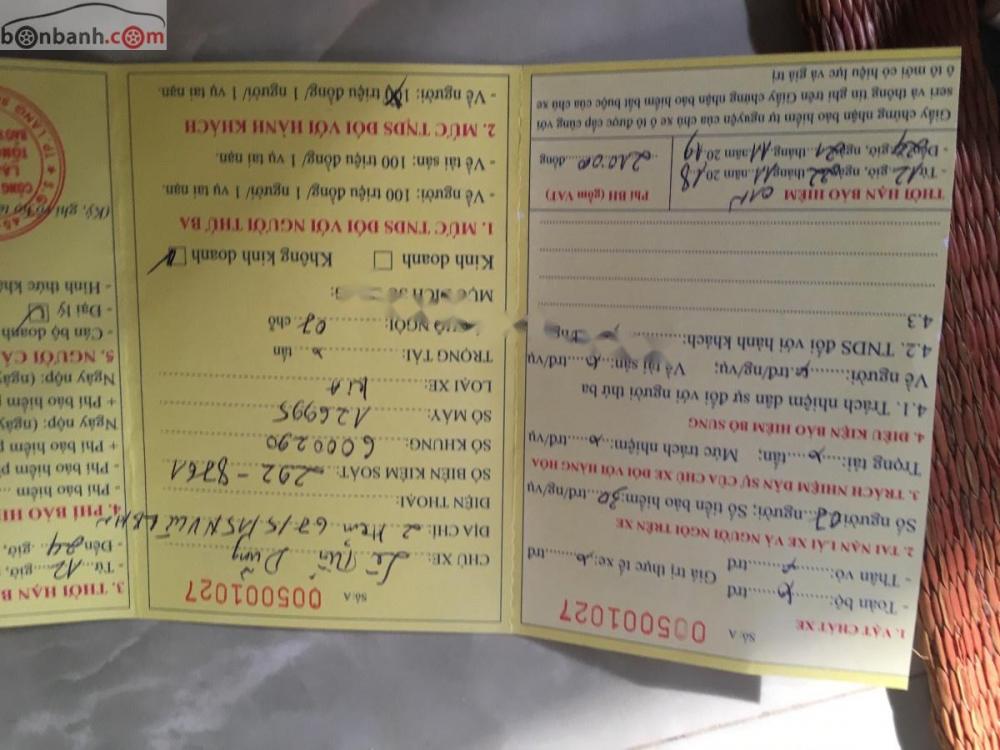 bonbanh.com
Số A 005001027
CHỦ XE: Lê Tiến Dũng
ĐỊA CHỈ: 2 Hẻm 67/5/115
ĐIỆN THOẠI:
SỐ BIỂN KIỂM SOÁT: 29Z - 8761
SỐ KHUNG: 6000290
SỐ MÁY: 126995
LOẠI XE: KIA
TRỌNG TẢI: tấn
NGỒI: 07 chỗ
MỤC ĐÍCH
Kinh doanh Không kinh doanh
1. MỨC TNDS ĐỐI VỚI NGƯỜI THỨ BA
- Về người: 100 triệu đồng/ 1 người/ 1 vụ tai nạn.
- Về tài sản: 100 triệu đồng/ 1 vụ tai nạn.
2. MỨC TNDS ĐỐI VỚI HÀNH KHÁCH
- Về người: 100 triệu đồng/ 1 người/ 1 vụ tai nạn.
Số A 005001027
1. VẬT CHẤT XE
- Toàn bộ: trđ Giá trị thực tế xe: trđ
- Thân vỏ: trđ
2. TAI NẠN LÁI XE VÀ NGƯỜI NGỒI TRÊN XE
Số người 07 người; Số tiền bảo hiểm: trđ/ng/vụ
3. TRÁCH NHIỆM DÂN SỰ CỦA CHỦ XE ĐỐI VỚI HÀNG HÓA
Trọng tải: tấn; Mức trách nhiệm: trđ/vụ
4. ĐIỀU KIỆN BẢO HIỂM BỔ SUNG
4.1. Trách nhiệm dân sự đối với người thứ ba
Về người: trđ/ng/vụ; Về tài sản: trđ/vụ
4.2. TNDS đối với hành khách:
4.3
THỜI HẠN BẢO HIỂM
- Từ 12 giờ, ngày 22 tháng 11 năm 2018
- Đến 24 giờ, ngày 21 tháng 11 năm 2019
Phí BH (gồm VAT)
210.000 đồng
Giấy chứng nhận bảo hiểm tự nguyện của chủ xe ô tô được cấp cùng với
seri và thông tin ghi trên Giấy chứng nhận bảo hiểm bắt buộc của chủ xe
ô tô mới có hiệu lực và giá trị
3. THỜI HẠN B
- Từ 12 giờ,
- Đến 24 giờ,
4. PHÍ BẢO HI
- Phí bảo hiểm
- Phí bảo hiểm p
+ Phí bảo hiểm p
Ngày nộp: (ngày
+ Phí bảo hiểm
Ngày nộp: (ngày
5. NGƯỜI CẤ
- Cán bộ doanh
- Đại lý
- Hình thức kh
(Ký, ghi rõ họ tê